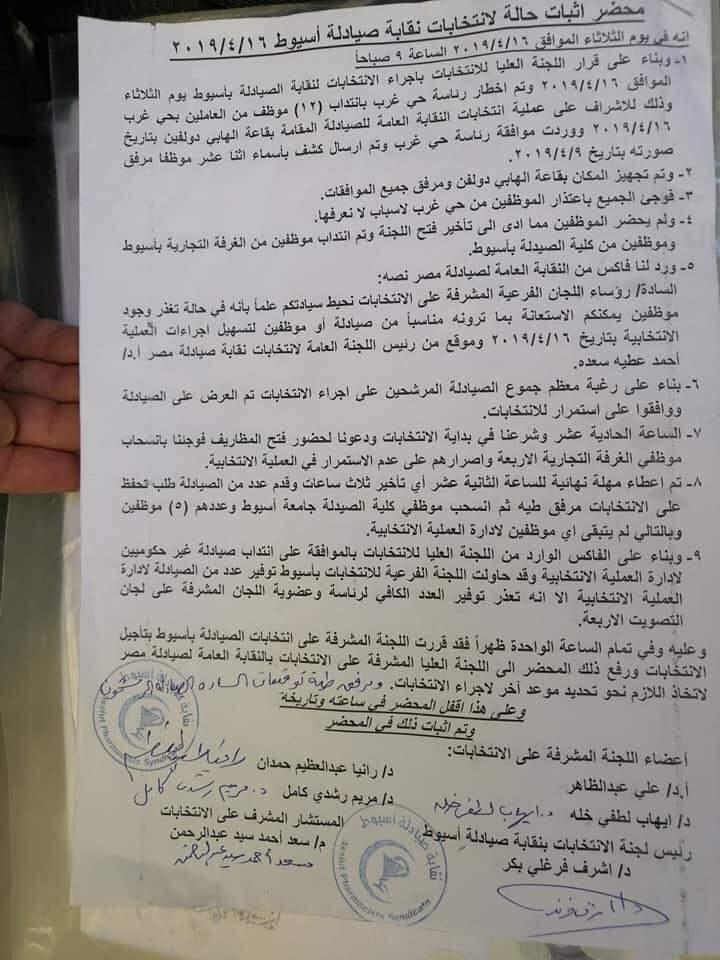 محضر اثبات حالة لانتخابات نقابة صيادلة أسيوط ٢٠١٩/٤/١٦
انه في يوم الثلاثاء الموافق ٢٠١٩/٤/١٦ الساعة ٩ صباحاً
١- وبناء على قرار اللجنة العليا للانتخابات بإجراء الانتخابات لنقابة الصيادلة بأسيوط يوم الثلاثاء
الموافق ٢٠١٩/٤/١٦ وتم اخطار رئاسة حي غرب بانتداب (١٢) موظف من العاملين بحي غرب
وذلك للاشراف على عملية انتخابات النقابة العامة للصيادلة المقامة بقاعة الهابي دولفين بتاريخ
٢٠١٩/٤/١٦ ووردت موافقة رئاسة حي غرب وتم ارسال كشف بأسماء اثنا عشر موظفا مرفق
صورته بتاريخ ٢٠١٩/٤/٩.
٢- وتم تجهيز المكان بقاعة الهابي دولفن ومرفق جميع الموافقات.
٣- فوجئ الجميع باعتذار الموظفين من حي غرب لاسباب لا نعرفها.
٤- ولم يحضر الموظفين مما ادى الى تأخير فتح اللجنة وتم انتداب موظفين من الغرفة التجارية بأسيوط
وموظفين من كلية الصيدلة بأسيوط.
٥- ورد لنا فاكس من النقابة العامة لصيادلة مصر نصه:
السادة/ رؤساء اللجان الفرعية المشرفة على الانتخابات نحيط سيادتكم علماً بأنه في حالة تغذر وجود
موظفين يمكنكم الاستعانة بما ترونه مناسباً من صيادلة أو موظفين لتسهيل اجراءات العملية
الانتخابية بتاريخ ٢٠١٩/٤/١٦ وموقع من رئيس اللجنة العامة لانتخابات نقابة صيادلة مصر أ.د/
أحمد عطيه سعده.
٦- بناء على رغبة معظم جموع الصيادلة المرشحين على اجراء الانتخابات تم العرض على الصيادلة
ووافقوا على استمرار للانتخابات.
٧- الساعة الحادية عشر وشرعنا في بداية الانتخابات ودعونا لحضور فتح المظاريف فوجئنا بانسحاب
موظفي الغرفة التجارية الاربعة واصرارهم على عدم الاستمرار في العملية الانتخابية.
٨- تم اعطاء مهلة نهائية للساعة الثانية عشر أي تأخير ثلاث ساعات وقدم عدد من الصيادلة طلب تحفظ
على الانتخابات مرفق طيه ثم انسحب موظفي كلية الصيدلة جامعة أسيوط وعددهم (٥) موظفين
وبالتالي لم يتبقى اي موظفين لادارة العملية الانتخابية.
٩- وبناء على الفاكس الوارد من اللجنة العليا للانتخابات بالموافقة على انتداب صيادلة غير حكوميين
لادارة العملية الانتخابية وقد حاولت اللجنة الفرعية للانتخابات بأسيوط توفير عدد من الصيادلة لادارة
العملية الانتخابية الا انه تعذر توفير العدد الكافي لرئاسة وعضوية اللجان المشرفة على لجان
التصويت الاربعة.
وعليه وفي تمام الساعة الواحدة ظهراً فقد قررت اللجنة المشرفة على انتخابات الصيادلة بأسيوط بتأجيل
الانتخابات ورفع ذلك المحضر الى اللجنة العليا المشرفة على الانتخابات بالنقابة العامة لصيادلة مصر
لاتخاذ اللازم نحو تحديد موعد آخر لاجراء الانتخابات. ومرفق طيه توقيعات السادة الصيادلة
وعلى هذا اقفل المحضر في ساعته وتاريخة
وتم اثبات ذلك في المحضر
أعضاء اللجنة المشرفة على الانتخابات:
أ.د/ علي عبدالظاهر
د/ رانيا عبدالعظيم حمدان
د/ ايهاب لطفي خله د. ايهاب لطفى خله
د/ مريم رشدي كامل د. مريم رشدى كامل
رئيس لجنة الانتخابات بنقابة صيادلة أسيوط
المستشار المشرف على الانتخابات
د/ اشرف فرغلي بكر
م/ سعد أحمد سيد عبدالرحمن
سعد أحمد سيد عبدالرحمن
نقابة صيادلة أسيوط
Assiut Pharmacists Syndicate
نقابة صيادلة أسيوط
Assiut Pharmacists Syndicate